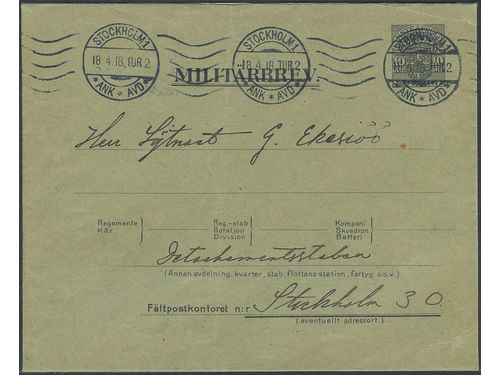 STOCKHOLM 1
18.4.18.TUR 2
* ANK * AVD *
STOCKHOLM 1
18.4.18.TUR 2
* ANK * AVD *
STOCKHOLM 1
* ANK * AVD *
MILITÄRBREV.
Herr Löjtnant G. Ekesiöö
Regemente
Kår
Reg.-stab
Bataljon
Division
Kompani
Skvadron
Batteri
Detachementsstaben
(Annan avdelning, kvarter, stab, flottans station, fartyg o.s.v.)
Fältpostkontoret n:r Stockholm 30.
(eventuellt adressort.)